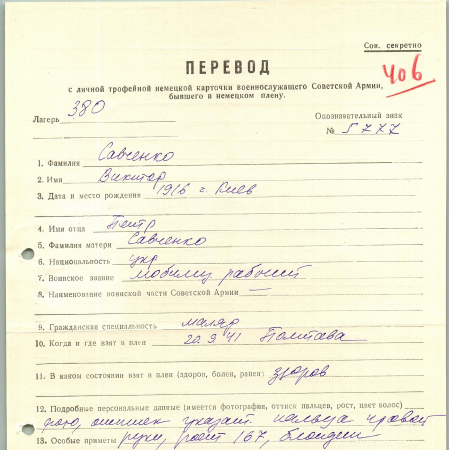 Сов. секретно
406
ПЕРЕВОД
с личной трофейной немецкой карточки военнослужащего Советской Армии,
бывшего в немецком плену.
Лагерь 380
Опознавательный знак
№ 5777
1. Фамилия Савченко
2. Имя Викитор
3. Дата и место рождения 1916 г. Киев
4. Имя отца Петр
5. Фамилия матери Савченко
6. Национальность укр
7. Воинское звание мобилиз рабочий
8. Наименование воинской части Советской Армии —
9. Гражданская специальность маляр
10. Когда и где взят в плен 20.9.41 Полтава
11. В каком состоянии взят в плен (здоров, болен, ранен) здоров
12. Подробные персональные данные (имеется фотография, оттиск пальцев, рост, цвет волос)
фото, указат. пальца правой
13. Особые приметы руки, рост 167, блондин